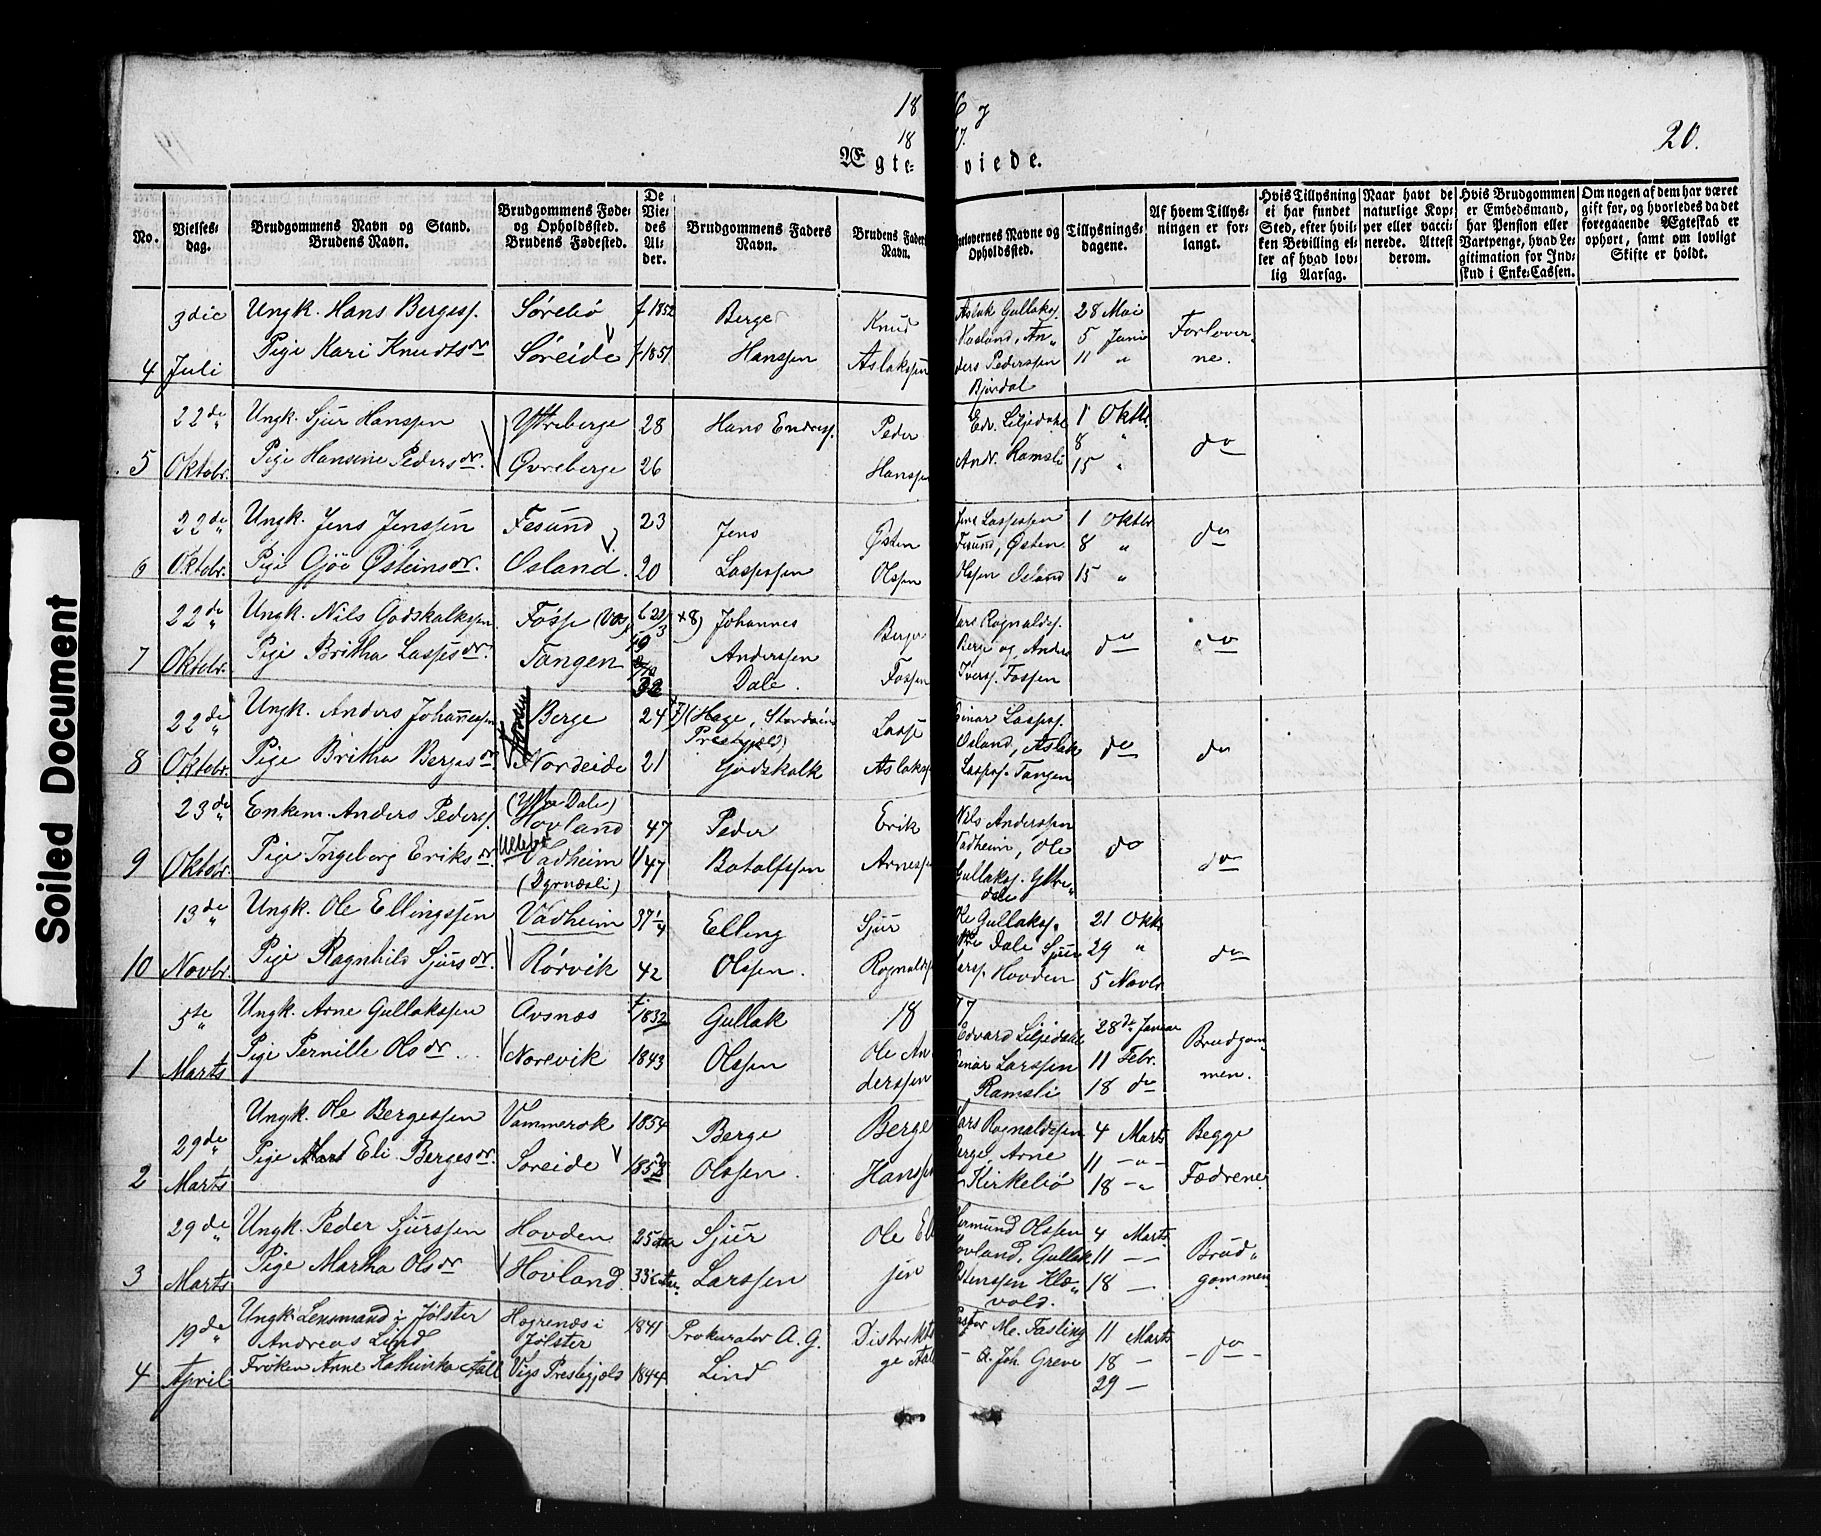 Soiled Document
1876
1877.
20.
Ægteviede.
No.
Vielsesdag.
Brudgommens Navn og Stand.
Brudens Navn.
Brudgommens Føde- og Opholdssted.
Brudens Fødested.
De Viedes Alder.
Brudgommens Faders Navn.
Brudens Faders Navn.
Forlovernes Navne og Opholdssted.
Tillysningsdagene.
Af hvem Tillysningen er forlangt.
Hvis Tillysning ei har fundet Sted, efter hvilken Bevilling eller af hvad lovlig Aarsag.
Naar havt de naturlige Kopper eller vaccinerede. Attest derom.
Hvis Brudgommen er Embedsmand, har Pension eller Vartpenge, hvad Legitimation for Indskud i Enke-Cassen.
Om nogen af dem har været gift før, og hvorledes da det foregaaende Ægteskab er ophørt, samt om lovligt Skifte er holdt.
4 3die Juli
Ungk. Hans Bergess.
Pige Kari Knudtsdr
Sørebø
Søreide
f 1852
f 1851
Berge Hanssen
Knud Aslakssen
Aslak Gullakss. Hovland, Anders Pederssen Bjordal
28 Mai
5 Juni
11 "
Forloverne.
5 22de Oktobr.
Ungk. Sjur Hanssen
Pige Hansine Pedersdr.
Ytreberge
Øvreberge
28
26
Hans Endress.
Peder Hanssen
Edv. Liljedahl
Andr. Ramsli
1 Oktbr.
8 "
15 "
do
6 22de Oktobr.
Ungk. Jens Jenssen
Pige Gjøe Østeinsdr.
Fesund
Osland.
23
20
Jens Lasessen
Østen Olssen
Jens Lassessen Fesund, Østen Olssen Osland
1 Oktbr
8 "
15 "
do
7 22de Oktobr.
Ungk. Nils Godskalkssen
Pige Britha Lassesdr.
Tangen
32
+8) Johannes Anderssen Dale.
Berge Fossen
Lars Rognaldss. Berge og Andres Iverss. Fossen
do
do
8 22de Oktobr.
Ungk. Anders Johannessen
Pige Britha Bergesdr.
Berge
Nordeide
24
21
7) (Hage, Stordøens Prestgjeld)
Godskalk
Lasse Aslakss
Einar Lassess. Osland, Aslak Lassess. Tangen
do
do
9 23de Oktobr.
Enkem. Anders Pederss.
Pige Ingeborg Eriksdr.
(Ytre Dale)
Hovland
Vadheim
(Dyrnæsli)
47
47
Peder Botolfssen
Erik Arnessen
Nils Anderssen Vadheim, Ole Gullakss. Ytredale
do
do
10 13de Novbr.
Ungk. Ole Ellingssen
Pige Ragnhild Sjursdr.
Vadheim
Rørvik
37 1/4
42
Elling Olssen.
Sjur Rognaldss
Ole Gullakss. Ytre Dale Sjur Larss. Hovden
21 Oktb
29 "
5 Novbr
do
1877
1 5te Marts
Ungk. Arne Gullakssen
Pige Pernille Olsdr.
Avsnæs
Norevik
f. 1832
1843
Gullak Olssen
Ole Anderssen
Edvard Liljedahl
Einar Larssen Ramsli
28de Januar
11 Febr.
18 do
Brudgommen.
2 29de Marts
Ungk. Ole Bergessen
Pige Eli Bergesdr.
Vammerak
Søreide
1854
Berge Olssen.
Berge Hanssen
Lars Rognaldssen Berge, Arne Kirkebø
4 Marts
11 -"-
18 -"
Begge Fædrene.
3 29de Marts
Ungk. Peder Sjurssen
Pige Martha Olsdr
Hovden
Hovland.
Sjur Larssen
Hermund Olssen Hovland, Gullak Østenssen Klævold.
4 Marts.
11 —
18 —
Brudgommen
4 19de April
Ungk. Lensmand i Jølster
Andreas Lind
Frøken Anne Kathinka Aall
Hægrenæs i Jølster
Vigs Prestegjæld
1841
1844
Prokurator A. G. Lind
Pastor Me. Fasting
- A. Joh. Greve
11 Marts
18 —
29 —
- do -